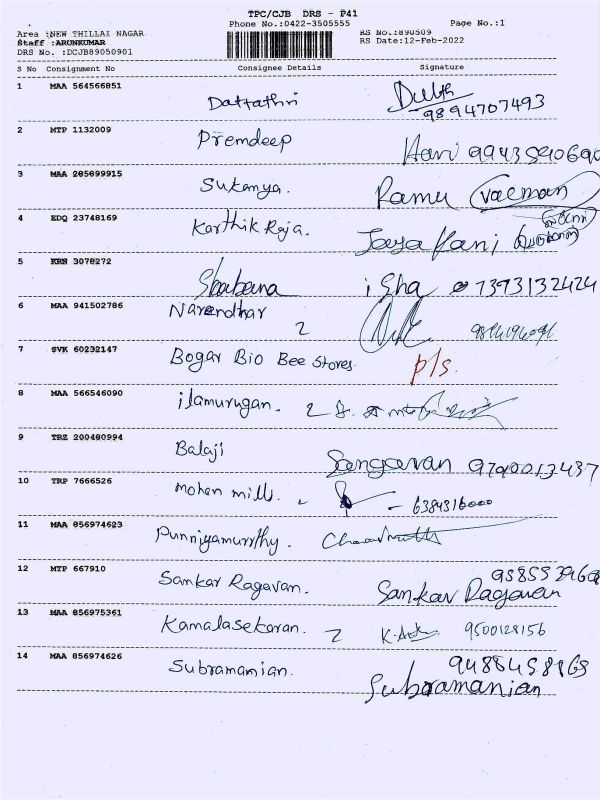 TPC/CJB DRS - P41
Phone No.:0422-3505555 Page No.:1
Area :NEW THILLAI NAGAR RS No:890509
Staff :ARUNKUMAR RS Date:12-Feb-2022
DRS No. :DCJB89050901
S No Consignment No Consignee Details Signature
1 MAA 564566851 Dattathri 9894707493
2 MTP 1132009 Premdeep Hari 9943590690
3 MAA 285899915 Sukanya. Ramu
4 EDQ 23748169 Karthik Raja. Jaya Rani
5 KRN 3078272 Shabana isha 7373132424
6 MAA 941502786 Narendhar 2
7 SVK 60232147 Bogar Bio Bee Stores. p/s.
8 MAA 566546090 ilamurugan. 2
9 TRZ 200480994 Balaji Sangeevan 9790013437
10 TRP 7666526 mohan mills. - 6384316000
11 MAA 856974623 Punniyamurrthy.
12 MTP 667910 Sankar Ragavan. Sankar Ragavan
13 MAA 856975361 Kamalasekaran. 2 9500128156
14 MAA 856974626 Subramamian. 9488458168
Subramanian